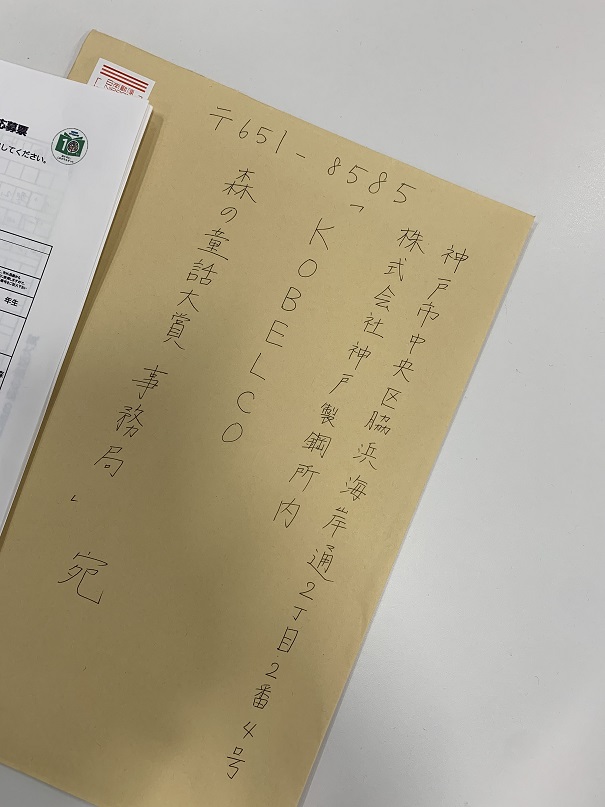 〒651-8585
神戸市中央区脇浜海岸通2丁目2番4号
株式会社神戸製鋼所内
「KOBELCO
森の童話大賞 事務局」宛
応募票
してください。
年生